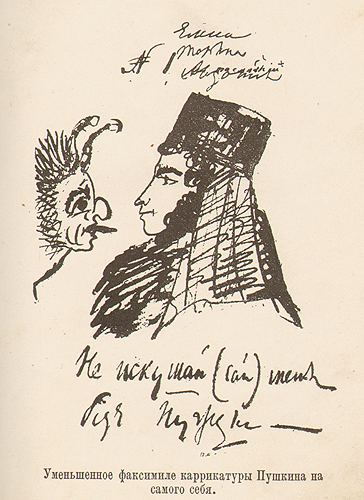 Не искушай (сай) меня
без нужды
Уменьшенное факсимиле каррикатуры Пушкина на
самого себя.